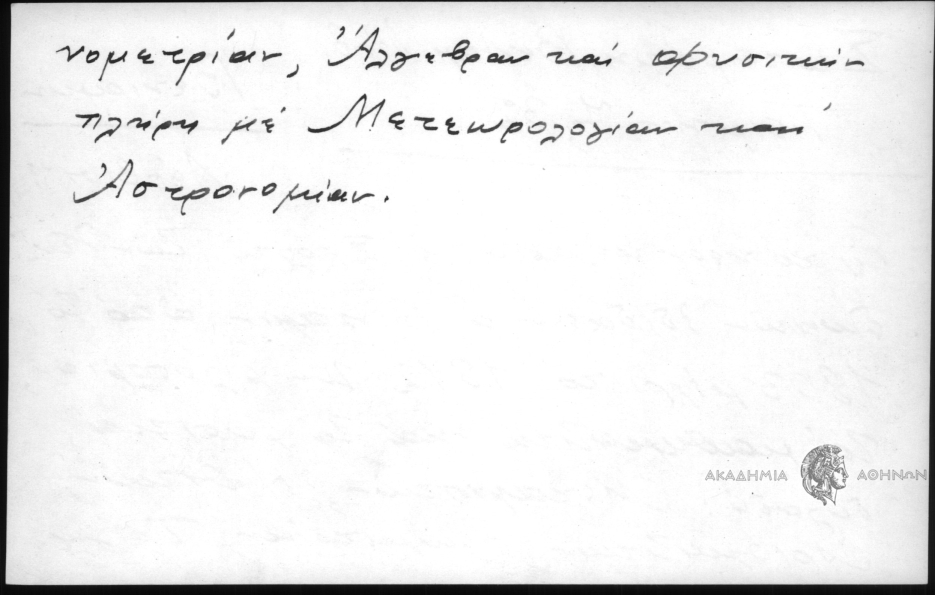 νομετρίαν, Ἄλγεβραν καί φυσικήν
πλήρη μέ Μετεωρολογίαν καί
Ἀστρονομίαν.
ΑΚΑΔΗΜΙΑ ΑΘΗΝΩΝ